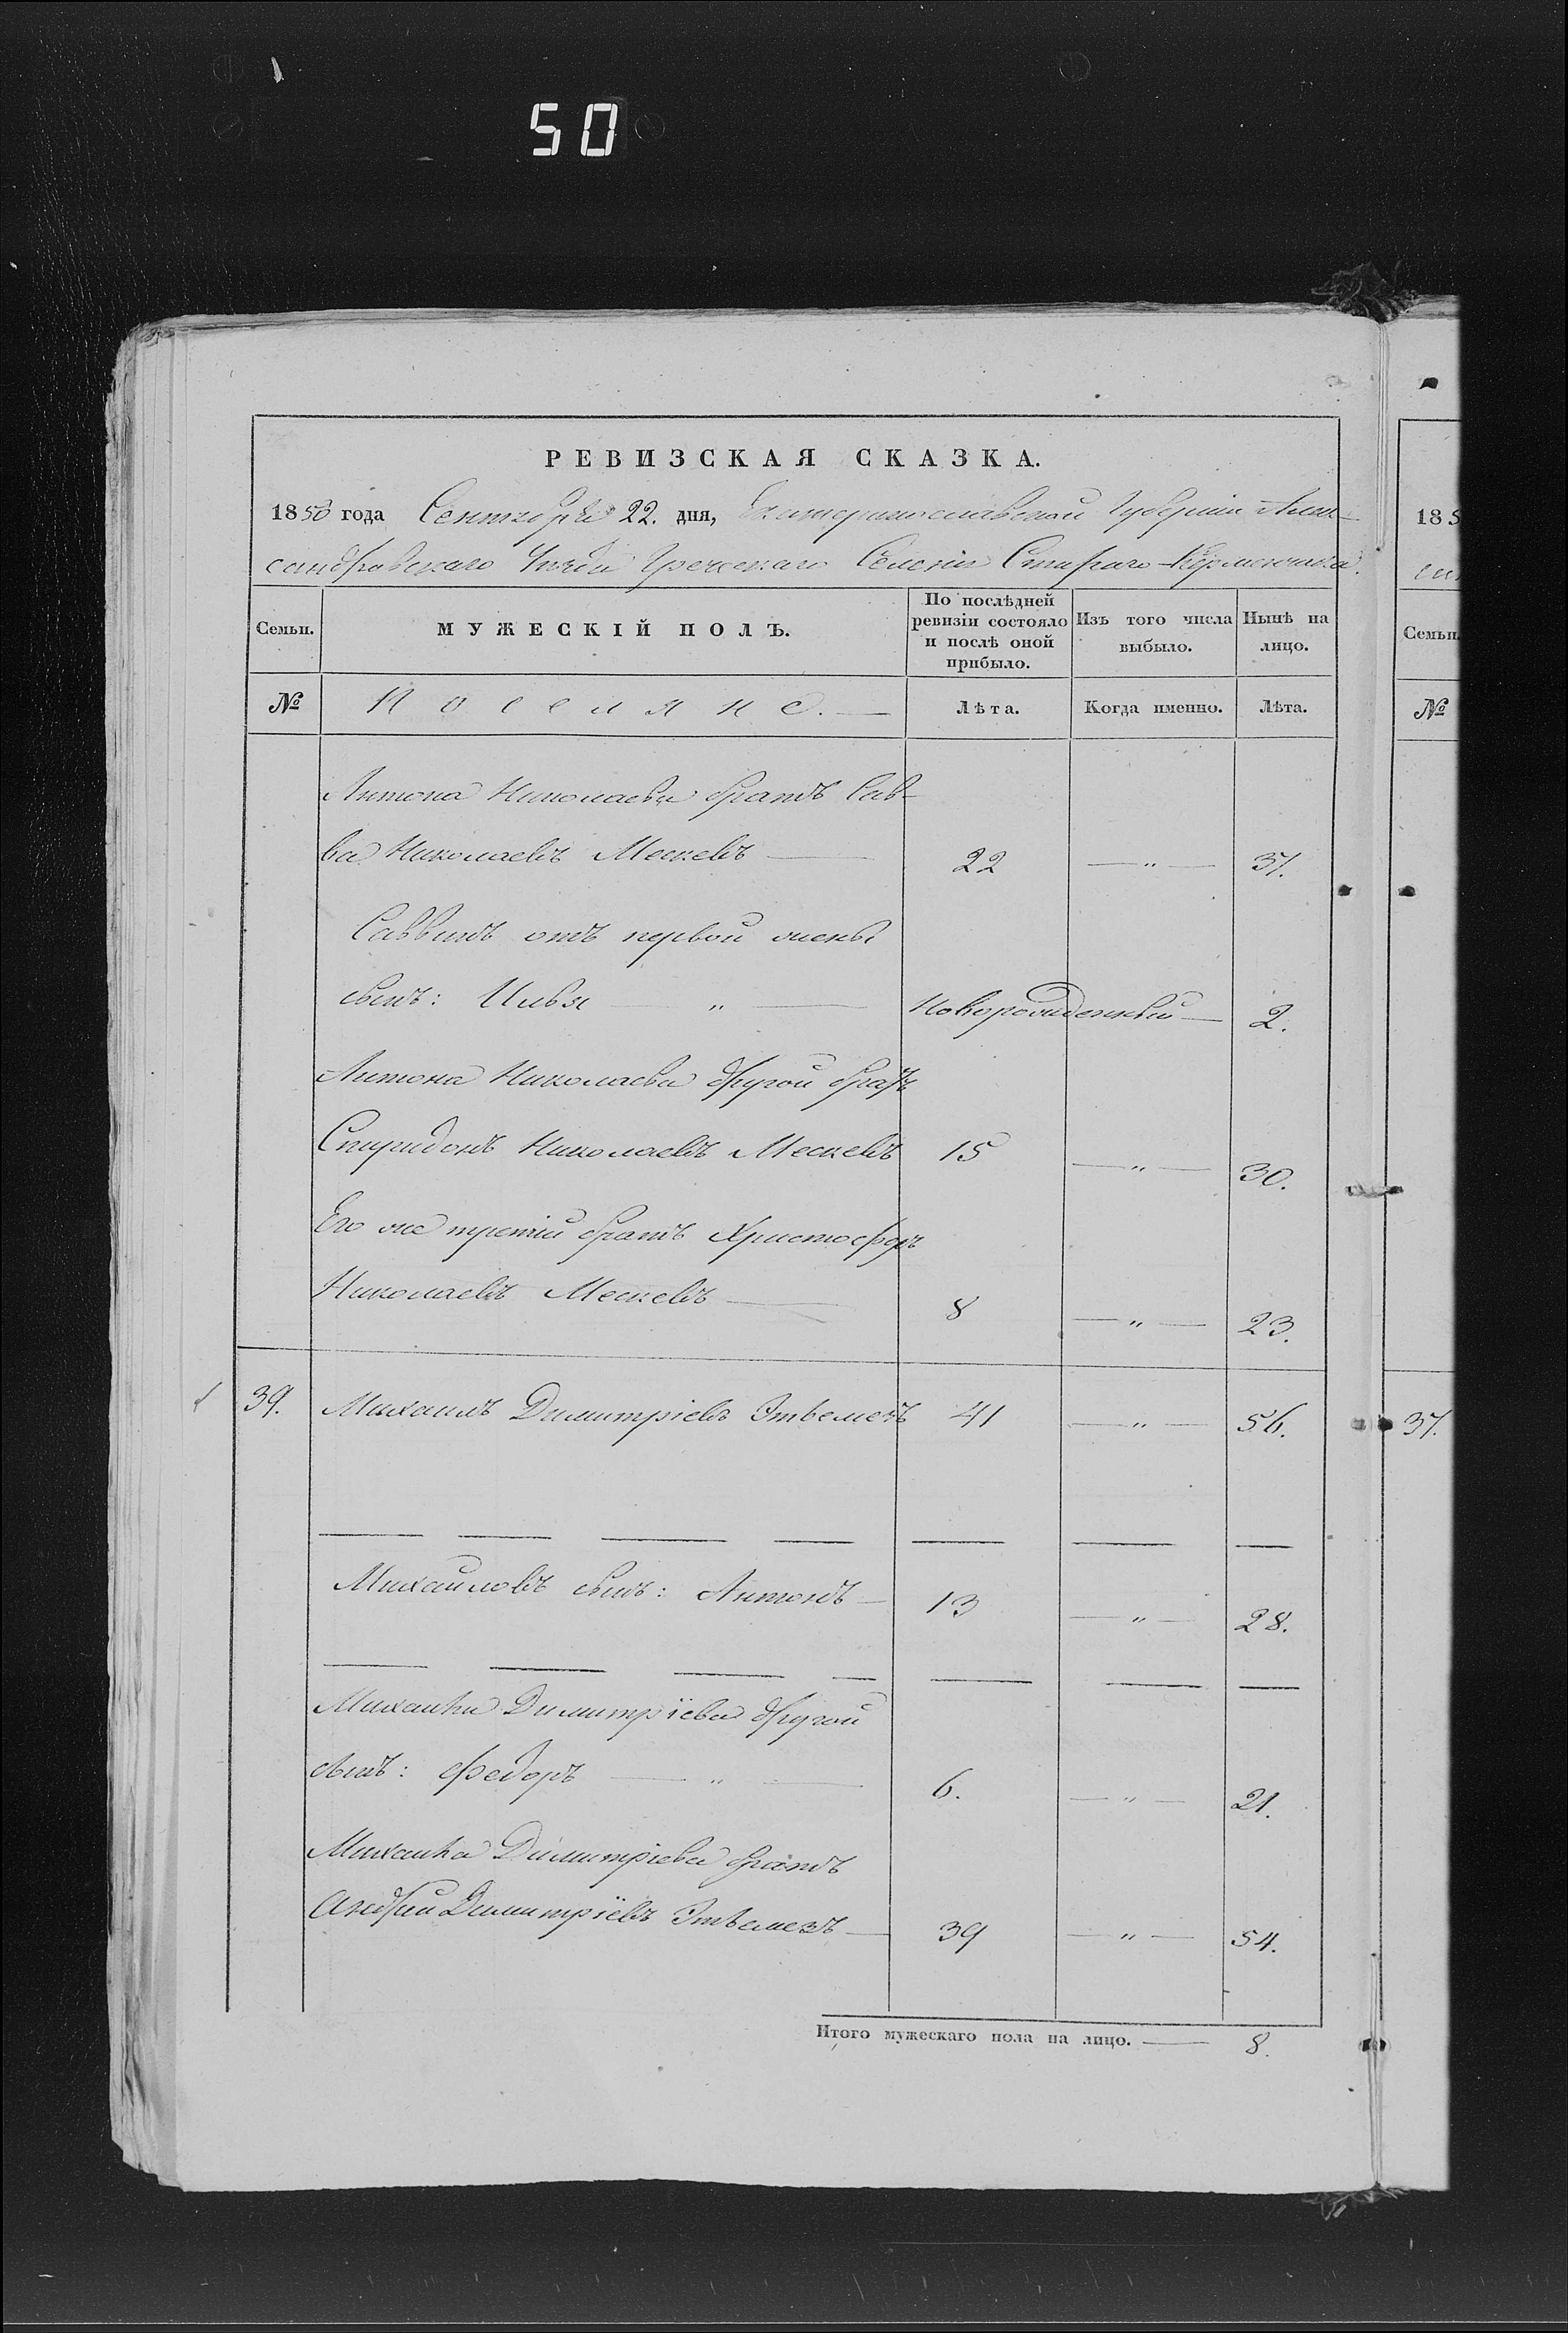 50
РЕВИЗСКАЯ СКАЗКА.
1850 года Сентября 22. дня, Екатеринославской Губерніи Алек-
сандровскаго Уѣзда Греческаго Селенія Стараго-Керменчика.
Семьи. МУЖЕСКІЙ ПОЛЪ. По послѣдней ревизіи состояло и послѣ оной прибыло. Изъ того числа выбыло. Нынѣ на лицо.
№ Поселяне. — Лѣта. Когда именно. Лѣта.
Антона Николаева братъ Сав-
ва Николаевъ Мескевъ — 22 — " — 37.
Саввинъ отъ первой жены
сынъ: Илья — " — Новорожденный — 2.
Антона Николаева другой братъ
Спиридонъ Николаевъ Мескевъ 15 — " — 30.
Его же третій братъ Христофоръ
Николаевъ Мескевъ — 8 — " — 23.
39. Михаилъ Димитріевъ 41 — " — 56.
Михайловъ сынъ: Антонъ — 13 — " — 28.
Михаила Димитріева другой
сынъ: Федоръ — " — 6. — " — 21.
Михаила Димитріева братъ
Андрей Димитріевъ — 39 — " — 54.
Итого мужескаго пола на лицо. — 8.
185
Семьи
№
37.